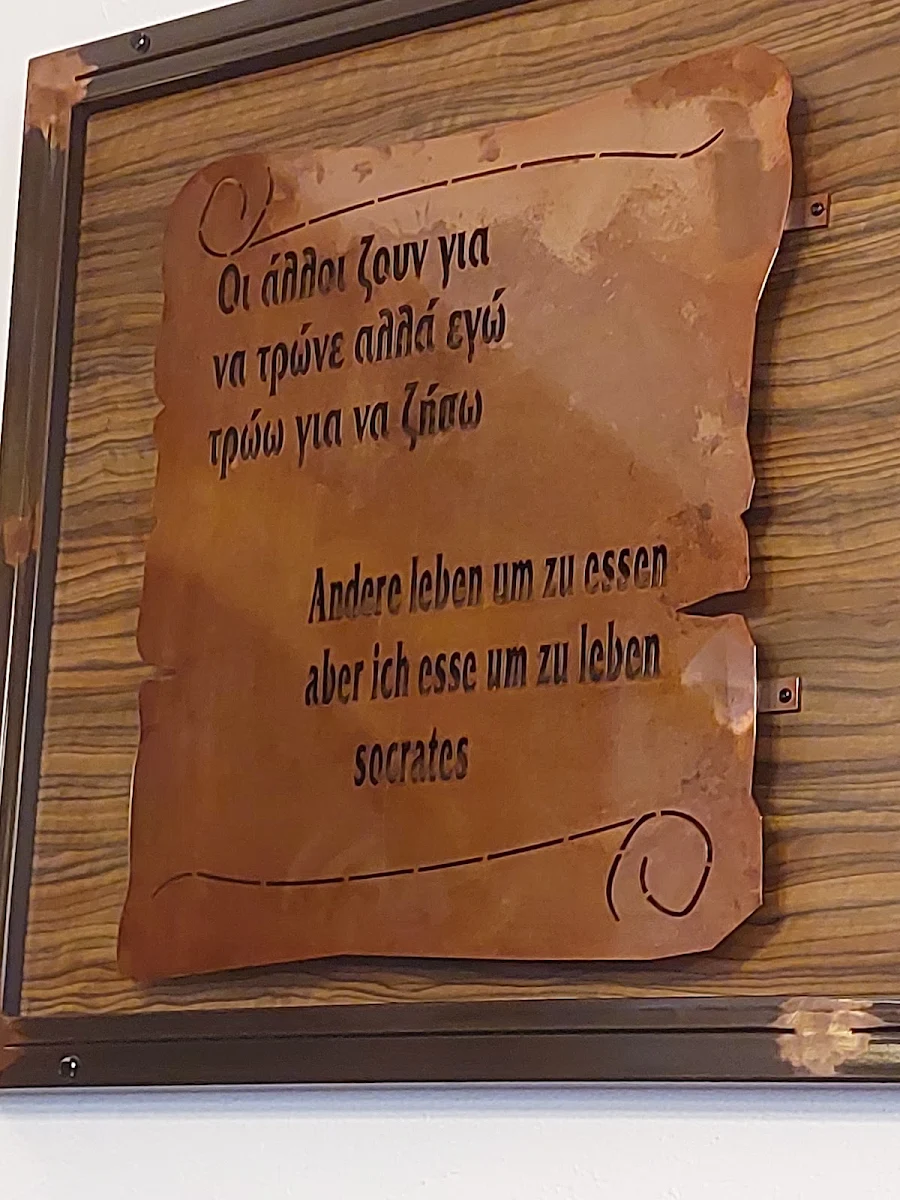 Οι άλλοι ζουν για
να τρώνε αλλά εγώ
τρώω για να ζήσω
Andere leben um zu essen
aber ich esse um zu leben
socrates